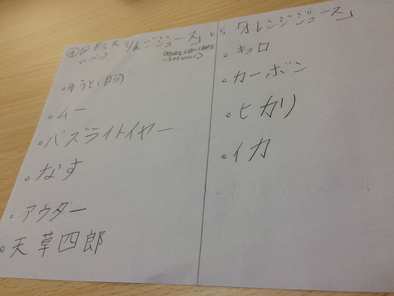 りんごジュース」vs「オレンジジュース」
・ムー
・バズライトイヤー
・なす
・アウター
・天草四郎
・キョロ
・カーボン
・ヒカリ
・イカ